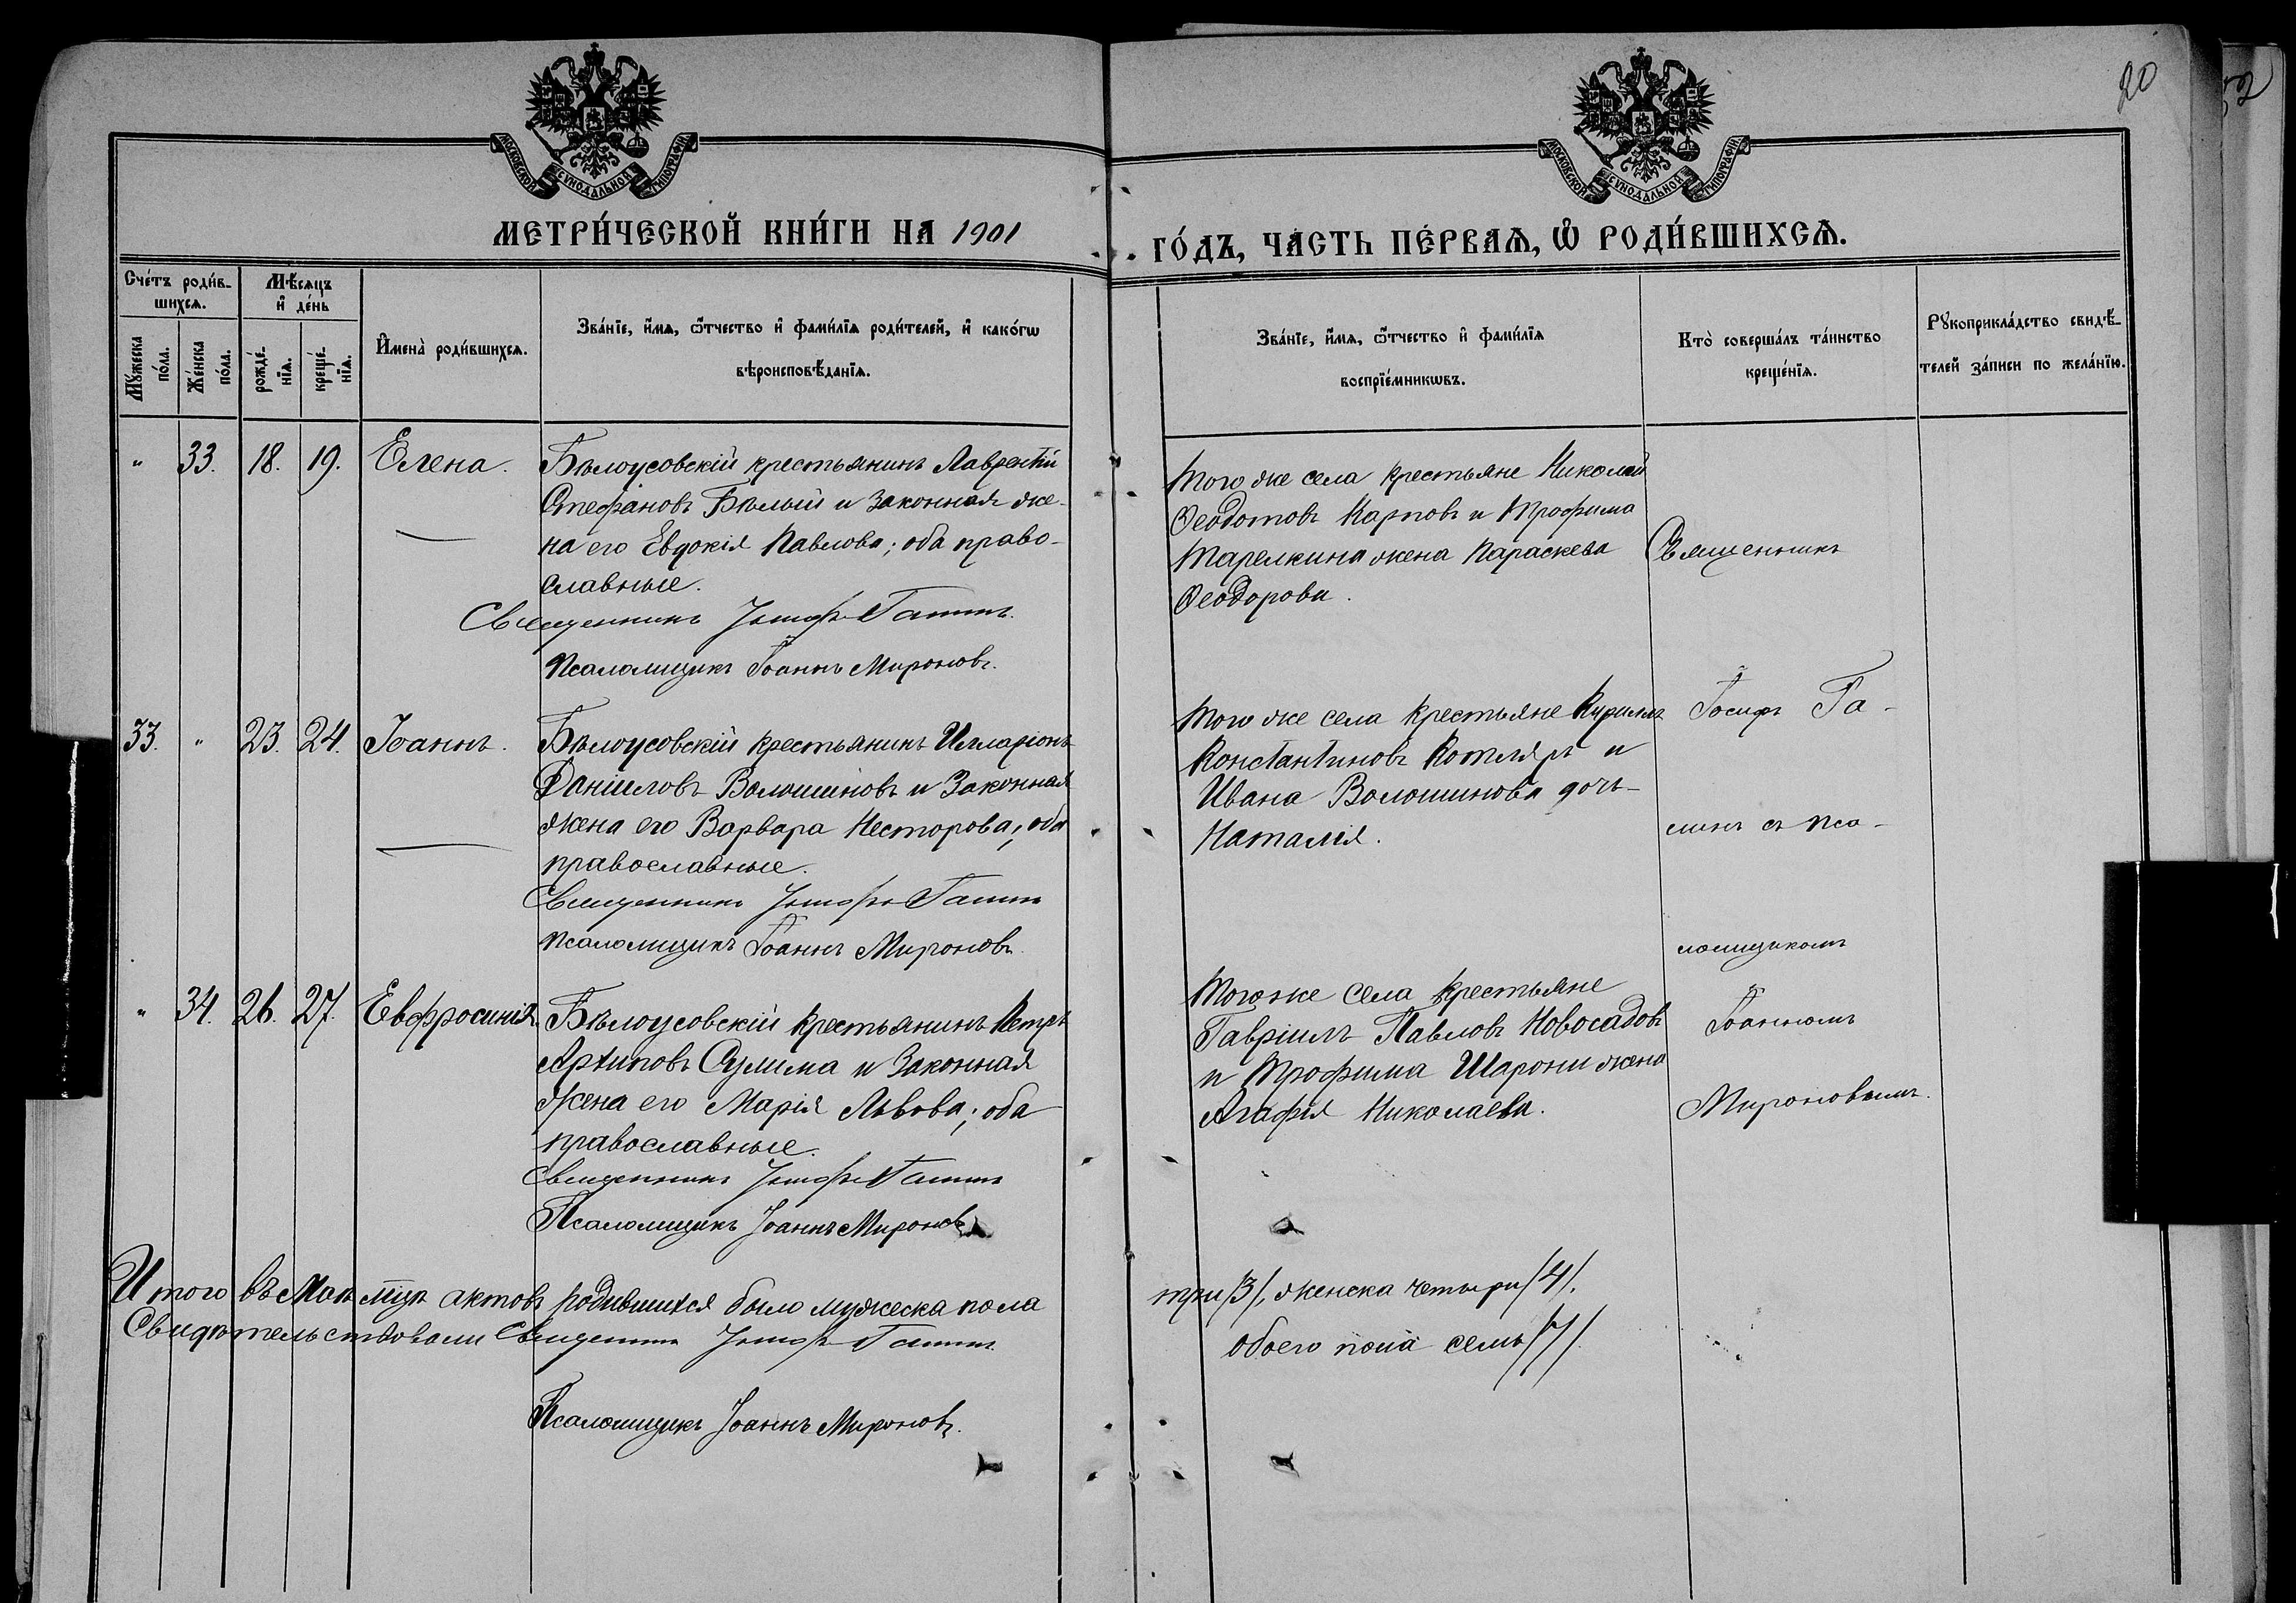 20
52
МОСКОВСКОЙ СѴНОДАЛЬНОЙ ТИПОГРАФІИ
МОСКОВСКОЙ СѴНОДАЛЬНОЙ ТИПОГРАФІИ
МЕТРИ́ЧЕСКОЙ КНИ́ГИ НА 1901
ГО́ДЪ, ЧА́СТЬ ПЕ́РВАѦ, Ѽ РОДИ́ВШИХСѦ.
Сче́тъ роди́в-
шихсѧ.
Мѣ́сѧцъ
и҆ де́нь
Мꙋ́жеска
по́ла.
Же́нска
по́ла.
рожде́-
нїѧ.
креще́-
нїѧ.
И҆мена̀ роди́вшихсѧ.
Зва́нїе, и҆́мѧ, ѻ҆́тчество и҆ фамі́лїѧ роди́телей, и҆ како́гѡ
вѣроисповѣ́данїѧ.
Зва́нїе, и҆́мѧ, ѻ҆́тчество и҆ фами́лїѧ
воспрїе́мникѡвъ.
Кто̀ соверша́лъ та́инство
креще́нїѧ.
Рꙋкоприкла́дство свидѣ́-
телей за́писи по жела́нїю.
" 33. 18. 19. Елена. Бѣлоусовскій крестьянинъ Лаврентій
Стефановъ Бѣлый и законная же-
на его Евдокія Павлова; оба право-
славные.
Священникъ Іосифъ Галинъ.
Псаломщикъ Іоаннъ Мироновъ.
Того же села крестьяне Николай
Ѳеодотовъ Карповъ и Трофима
Тарелкина жена Параскева
Ѳеодорова.
Священникъ
33. " 23. 24. Іоаннъ. Бѣлоусовскій крестьянинъ Илларіонъ
Даніиловъ Волошиновъ и законная
жена его Варвара Несторова; оба
православные.
Священникъ Іосифъ Галинъ
Псаломщикъ Іоаннъ Мироновъ.
Того же села крестьяне Кириллъ
Константиновъ Котляръ и
Ивана Волошинова дочь
Наталія.
Іосифъ Га-
линъ съ пса-
ломщикомъ
" 34. 26. 27. Евфросинія. Бѣлоусовскій крестьянинъ Петръ
Архиповъ Сулима и законная
жена его Марія Львова; оба
православные.
Священникъ Іосифъ Галинъ
Псаломщикъ Іоаннъ Мироновъ
Того же села крестьяне
Гавріилъ Павловъ Новосадовъ
и Трофима Шарони жена
Агафія Николаева.
Іоанномъ
Мироновымъ.
Итого въ Маѣ мцѣ актовъ родившихся было мужеска пола
три /3/, женска четыри /4/.
Свидѣтельствовали Священникъ Іосифъ Галинъ
обоего пола семь /7/
Псаломщикъ Іоаннъ Мироновъ.